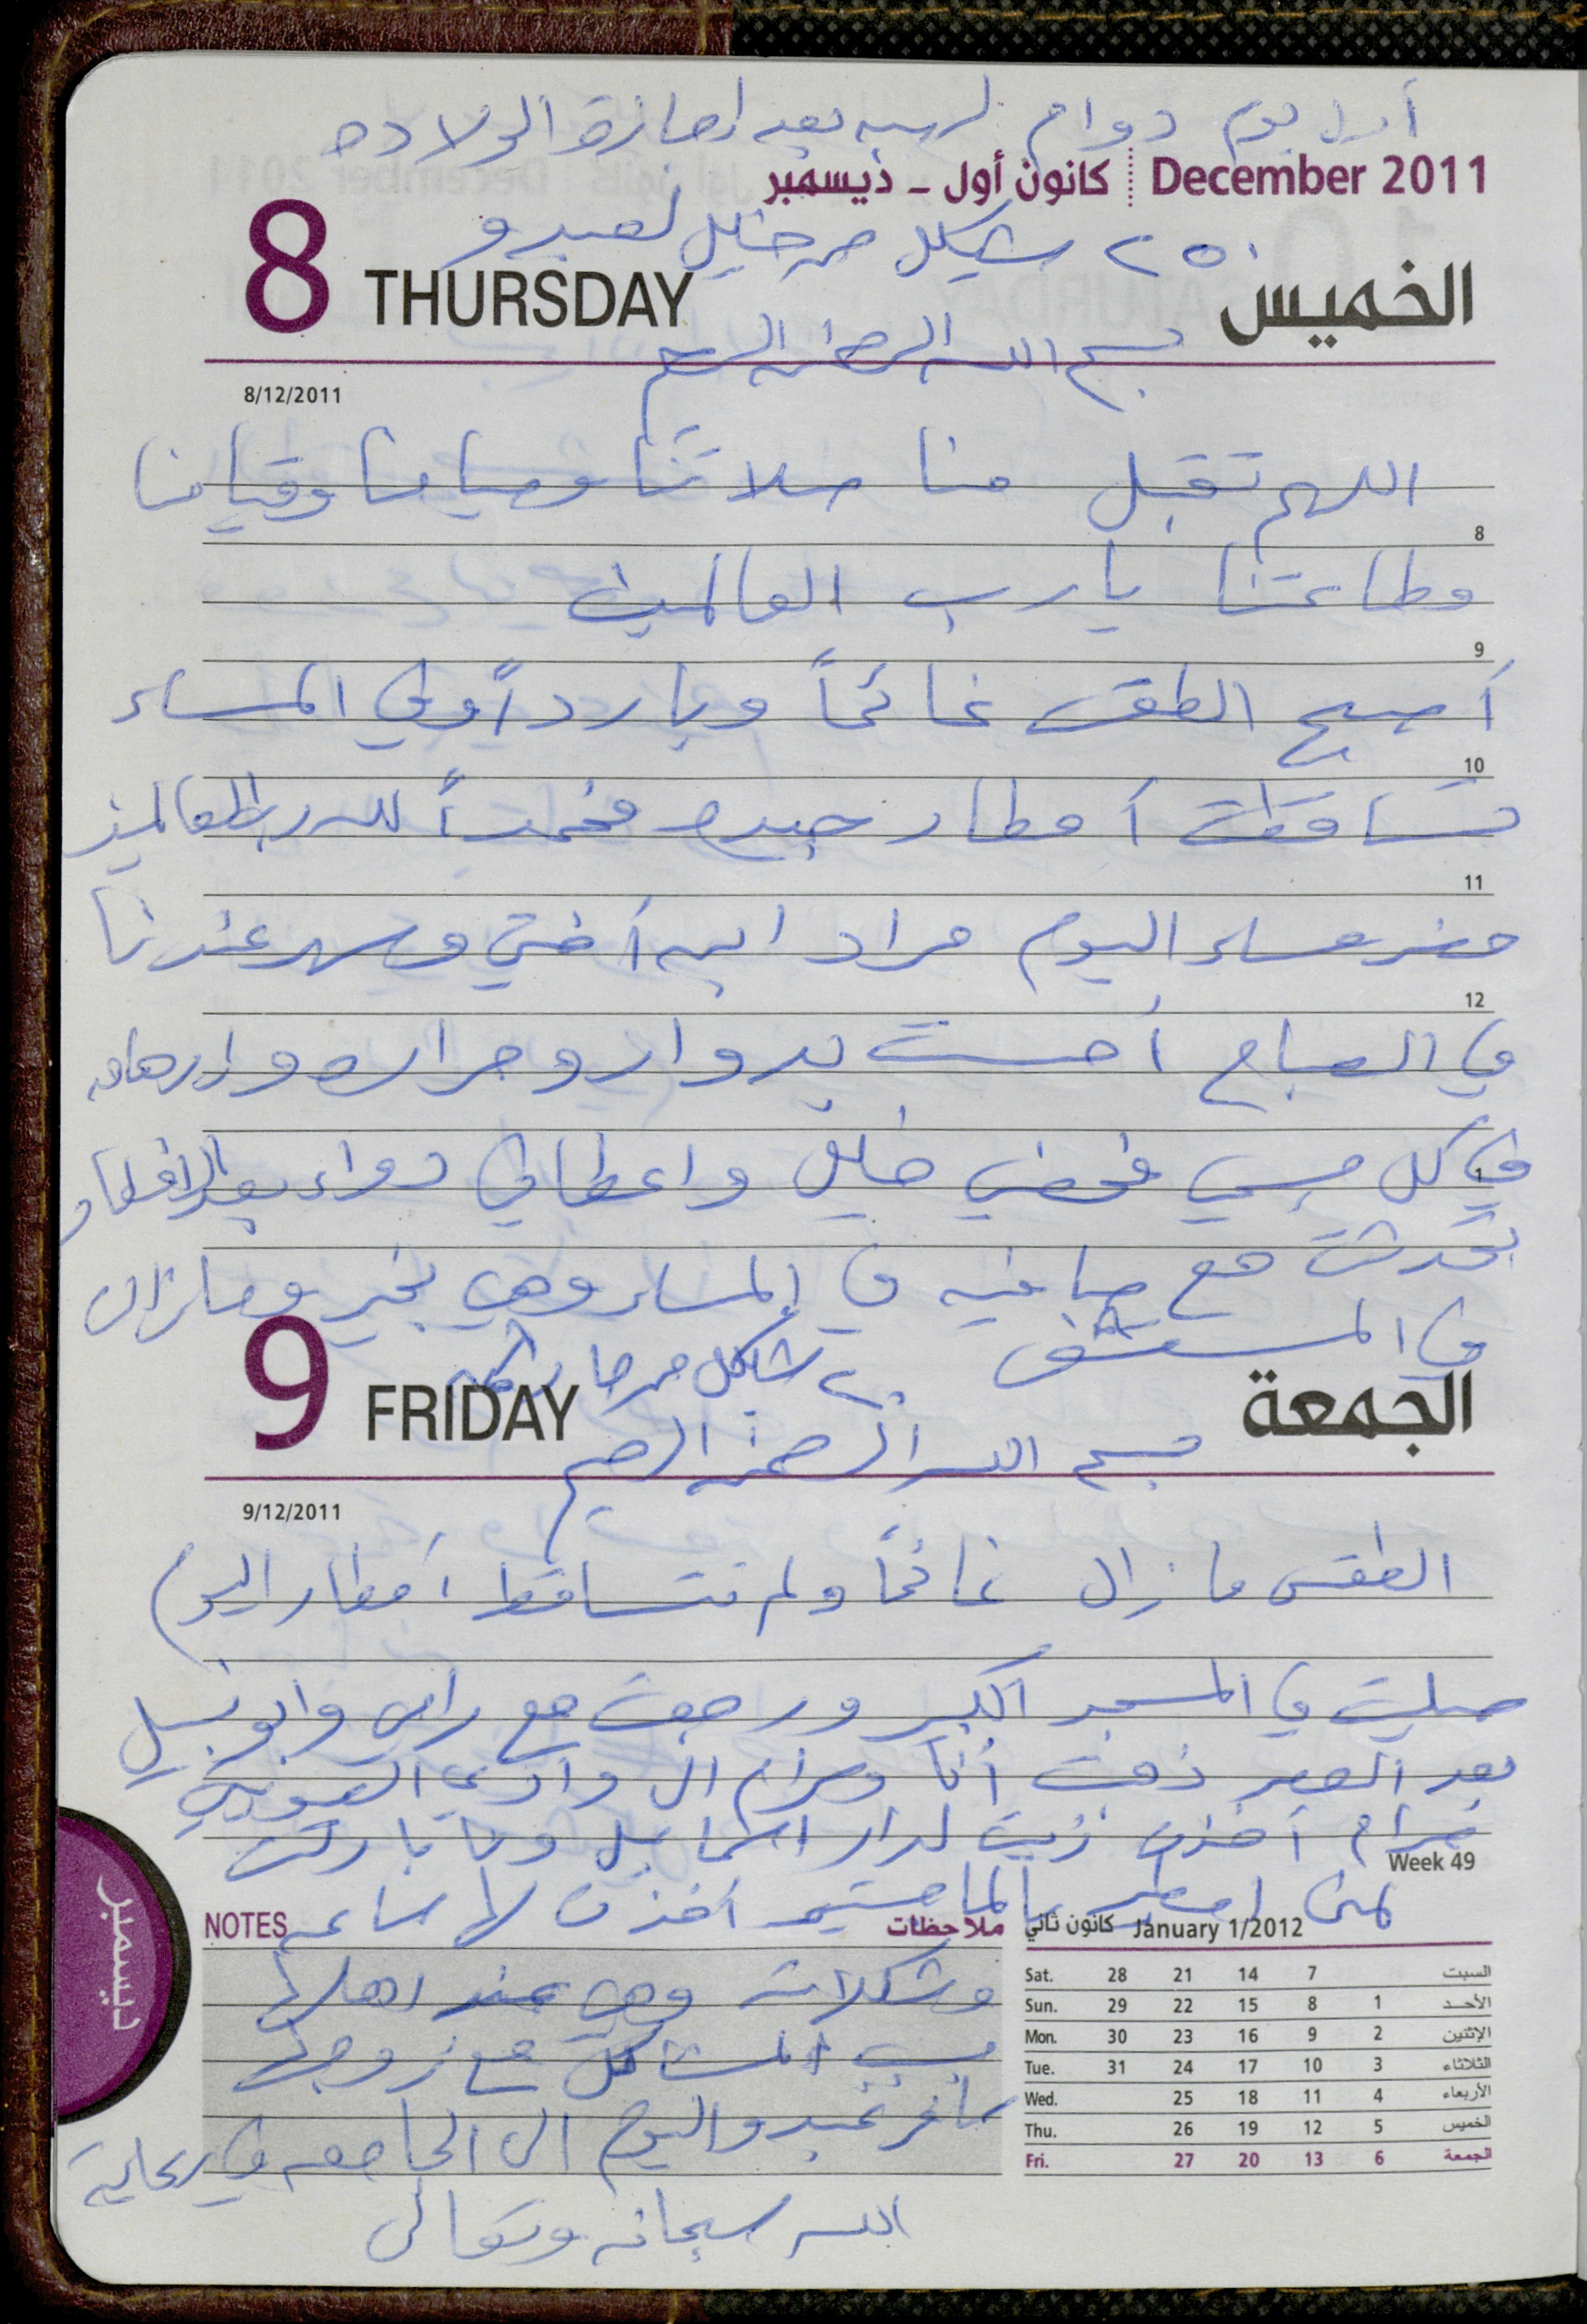 أول يوم دوام لربى بعد إجازة الولاده
December 2011 كانون أول - ديسمبر
٢٥٠ شيكل من خليل لعبدو
8 THURSDAY الخميس
بسم الله الرحمن الرحيم
8/12/2011
اللهم تقبل منا صلاتنا وصيامنا وقيامنا
8
وطاعتنا يا رب العالمين
9
أصبح الطقس غائماً وبارداً وفي المساء
10
تساقطت أمطار جيده فحمداً لله رب العالمين
11
حضر مساء اليوم مراد ابن أختي وسهر عندنا
12
في الصباح أحسست بدوار وحراره وارهاق
1
في كل جسمي فحصني خليل واعطاني دواء بعد الافطار
تحدثت مع صافيه في المساء وهي بخير وما زال
في المستشفى
٢٠ شيكل من
9 FRIDAY الجمعة
بسم الله الرحمن الرحيم
9/12/2011
الطقس ما زال غائماً ولم تتساقط أمطار اليوم
صليت في المسجد الكبير ورجعت مع رامي وابو نبيل
بعد العصر ذهبت أنا ومرام الى وادي
مرام أخذت زيت لدار اسماعيل وانا باركت
Week 49
لمنى أخذت لها ساعه
NOTES ملاحظات
January 1/2012 كانون ثاني
وشكلاته وهي عند اهلها
بسبب المشاكل مع زوجها
سافر عبدو اليوم الى الجامعه في رعاية
الله سبحانه وتعالى
Sat. 28 21 14 7 السبت
Sun. 29 22 15 8 1 الأحد
Mon. 30 23 16 9 2 الإثنين
Tue. 31 24 17 10 3 الثلاثاء
Wed. 25 18 11 4 الأربعاء
Thu. 26 19 12 5 الخميس
Fri. 27 20 13 6 الجمعة
ديسمبر